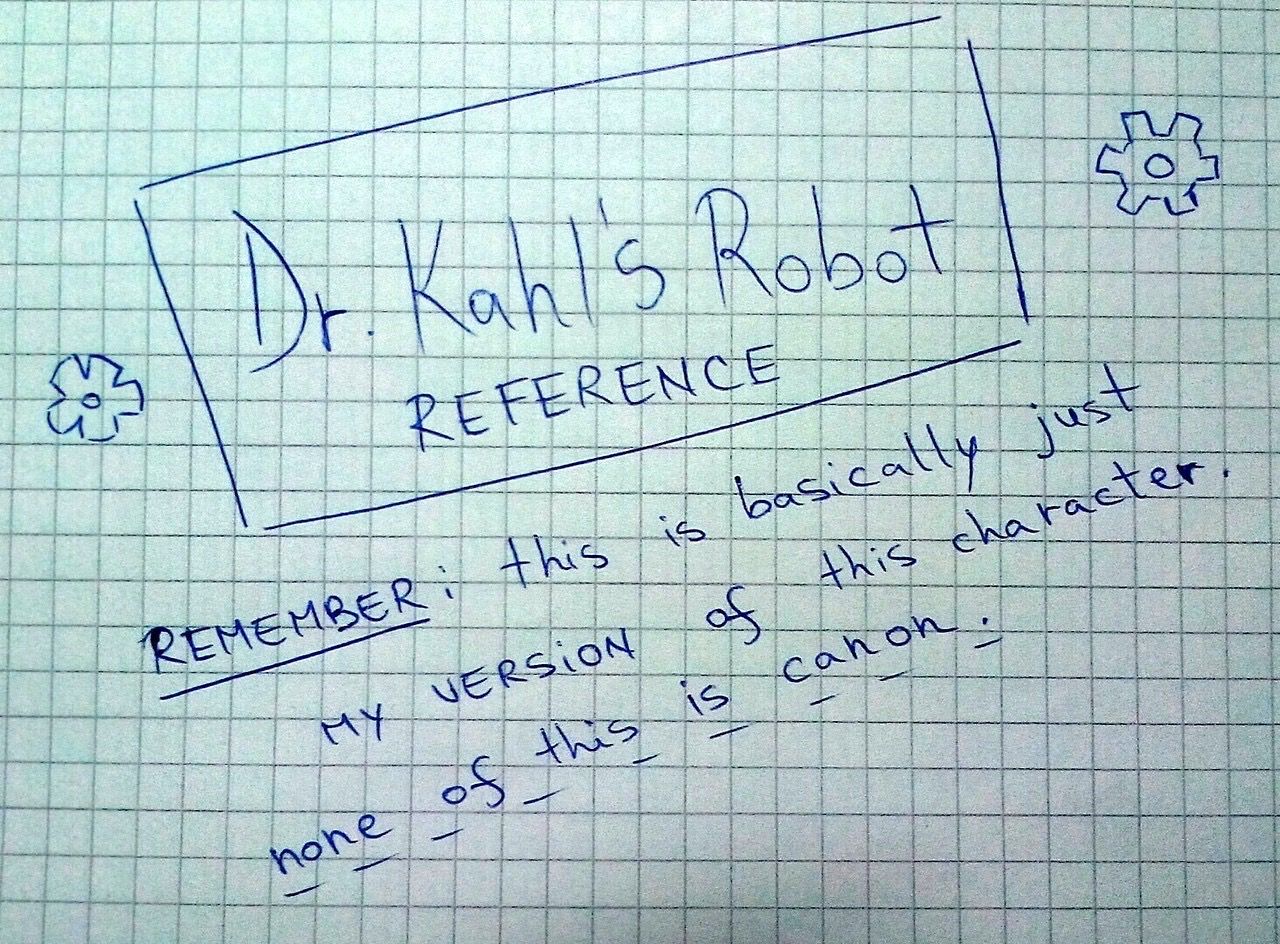 Dr. Kahl's Robot
REFERENCE
REMEMBER: this is basically just
MY VERSION of this character.
none of this is canon.